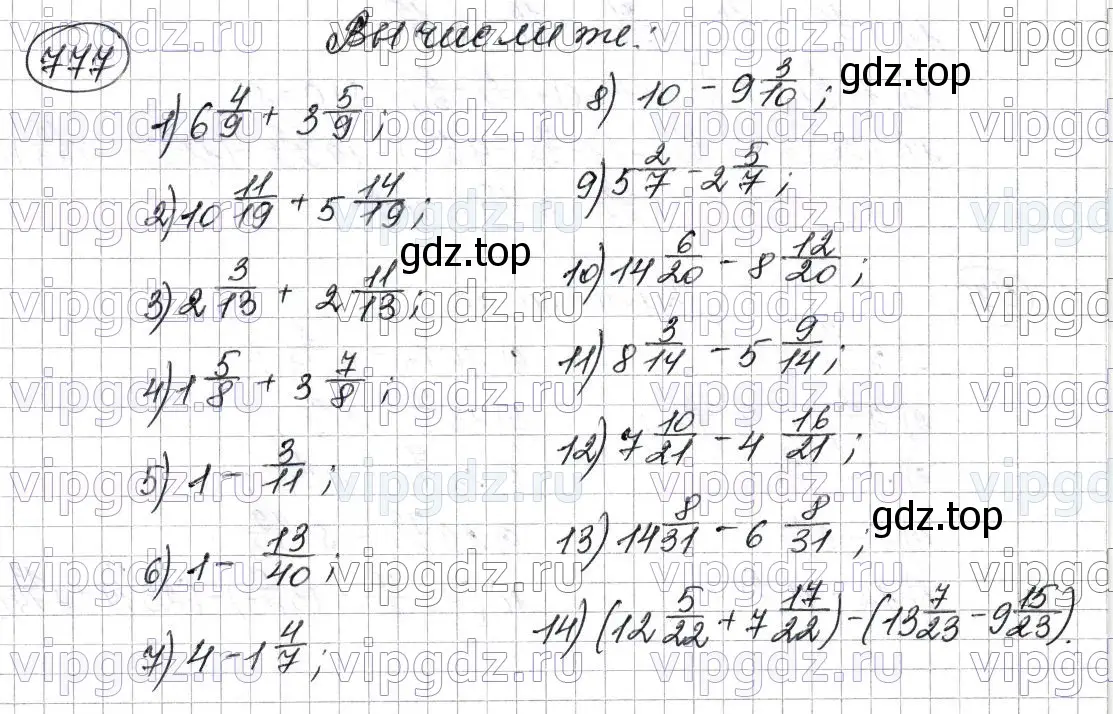 777 Вычислите:
1) 6 4/9 + 3 5/9;
2) 10 11/19 + 5 14/19;
3) 2 3/13 + 2 11/13;
4) 1 5/8 + 3 7/8;
5) 1 - 3/11;
6) 1 - 13/40;
7) 4 - 1 4/7;
8) 10 - 9 3/10;
9) 5 2/7 - 2 5/7;
10) 14 6/20 - 8 12/20;
11) 8 3/14 - 5 9/14;
12) 7 10/21 - 4 16/21;
13) 14 8/31 - 6 8/31;
14) (12 5/22 + 7 17/22) - (13 7/23 - 9 15/23).
gdz.top
gdz.top
gdz.top
vipgdz.ru